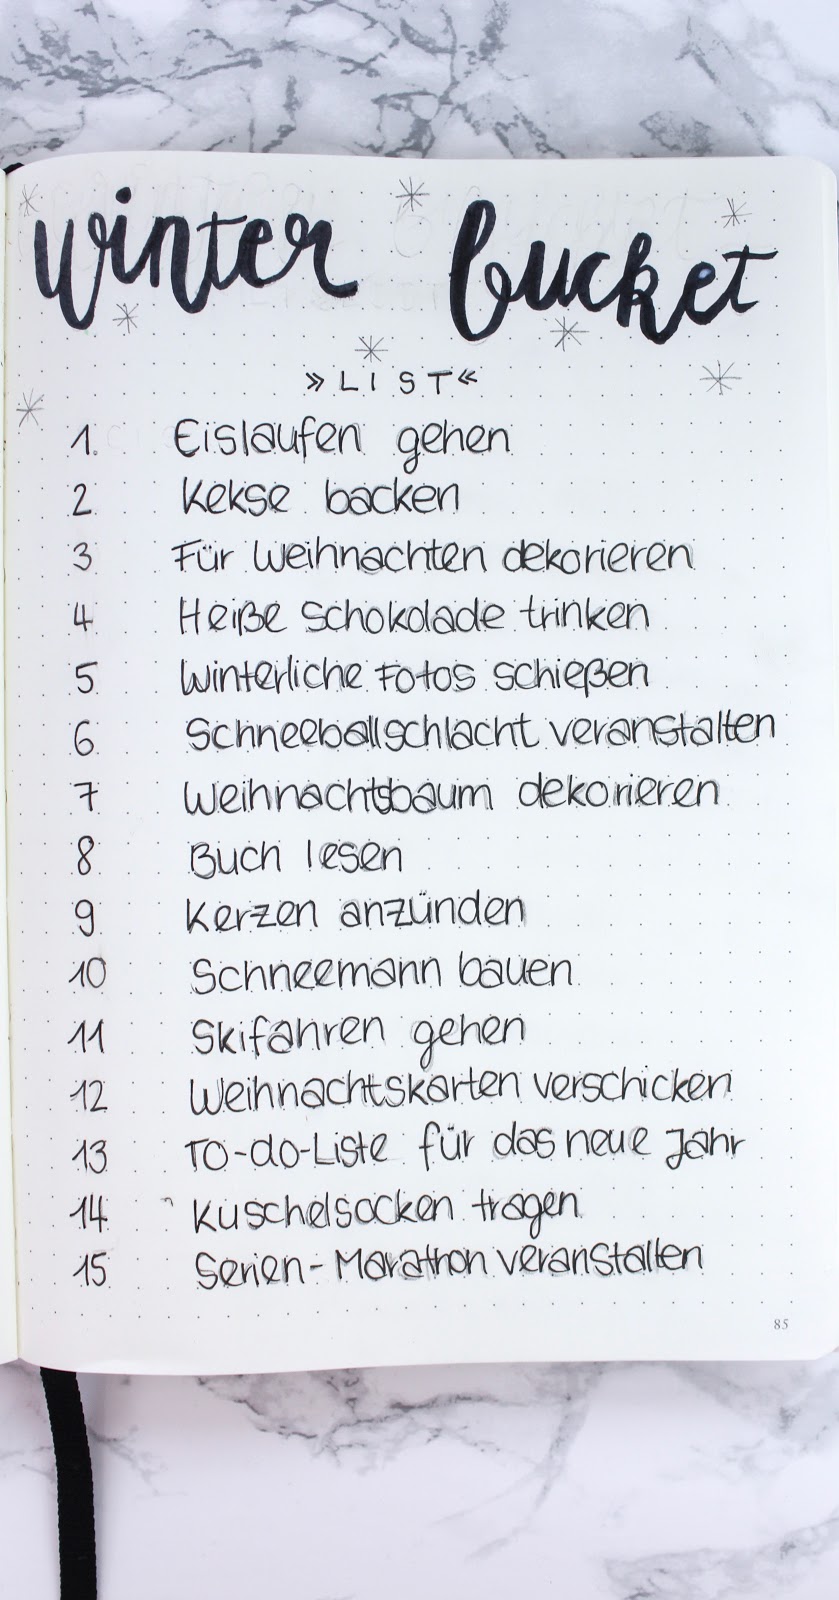 winter bucket
»LIST«
1. Eislaufen gehen
2 Kekse backen
3 Für Weihnachten dekorieren
4 Heiße Schokolade trinken
5 Winterliche Fotos schießen
6 Schneeballschlacht veranstalten
7 Weihnachtsbaum dekorieren
8 Buch lesen
9 Kerzen anzünden
10 Schneemann bauen
11 Skifahren gehen
12 Weihnachtskarten verschicken
13 To-do-Liste für das neue Jahr
14 Kuschelsocken tragen
15 Serien-Marathon veranstalten
85